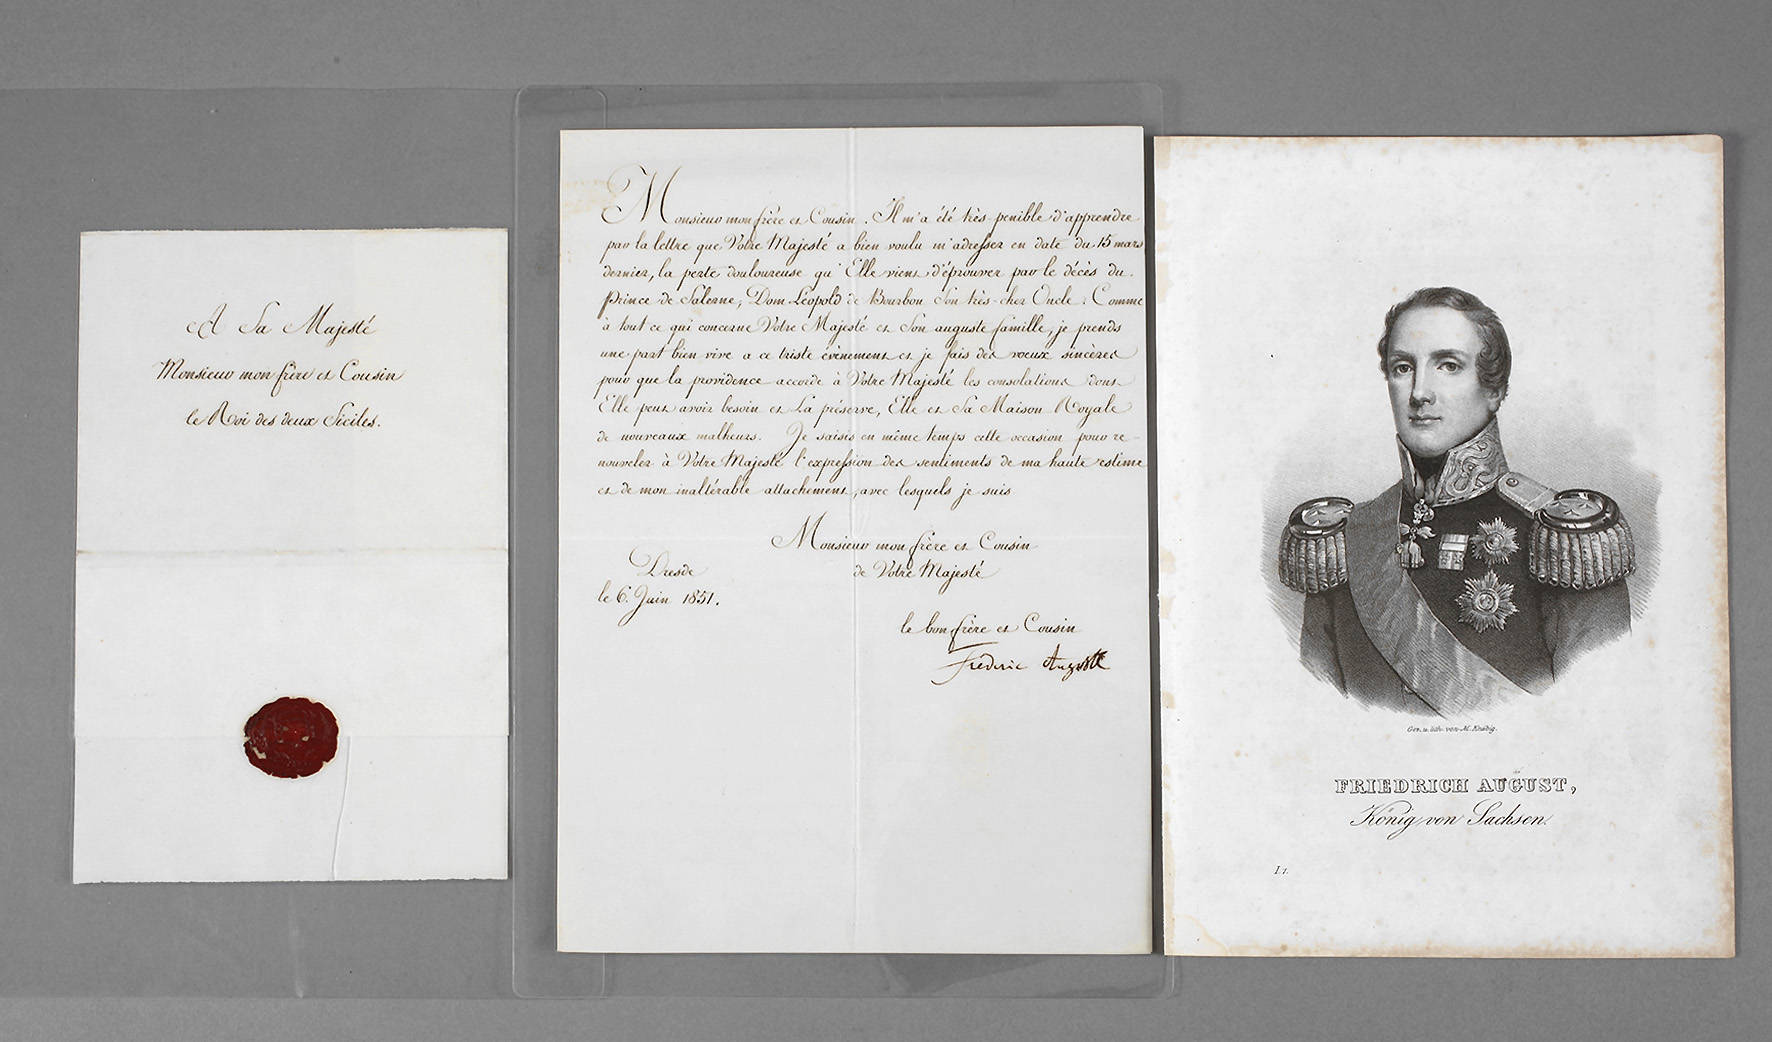 A Sa Majesté
Monsieur mon frère et Cousin
le Roi des deux Siciles.
Monsieur mon frère et Cousin. Il m'a été très-penible d'apprendre
par la lettre que Votre Majesté a bien voulu m'adresser en date du 15 mars
dernier, la perte douloureuse qu'Elle vient d'éprouver par le décès du
Prince de Salerne, Dom Léopold de Bourbon Son très-cher Oncle. Comme
à tout ce qui concerne Votre Majesté et Son auguste famille, je prends
une part bien vive a ce triste évènement et je fais des voeux sincères
pour que la providence accorde à Votre Majesté les consolations dont
Elle peut avoir besoin et La préserve, Elle et Sa Maison Royale
de nouveaux malheurs. Je saisis en même temps cette occasion pour re-
nouveler à Votre Majesté l'expression des sentiments de ma haute estime
et de mon inaltérable attachement, avec lesquels je suis
Monsieur mon frère et Cousin
de Votre Majesté
Dresde
le 6. Juin 1851.
le bon frère et Cousin
Fréderic Auguste
Gez. u. lith. von M. Knäbig.
FRIEDRICH AUGUST,
König von Sachsen.
I. 1.